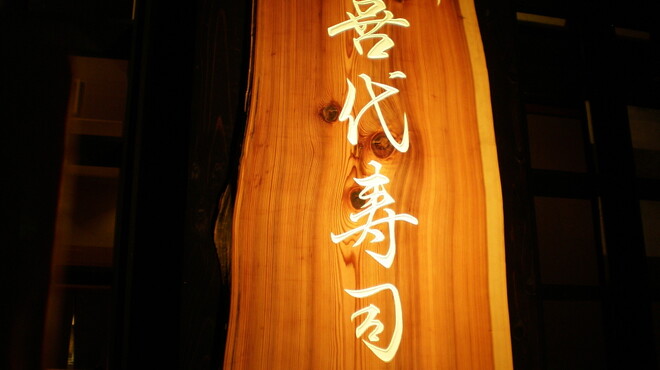 喜代寿司